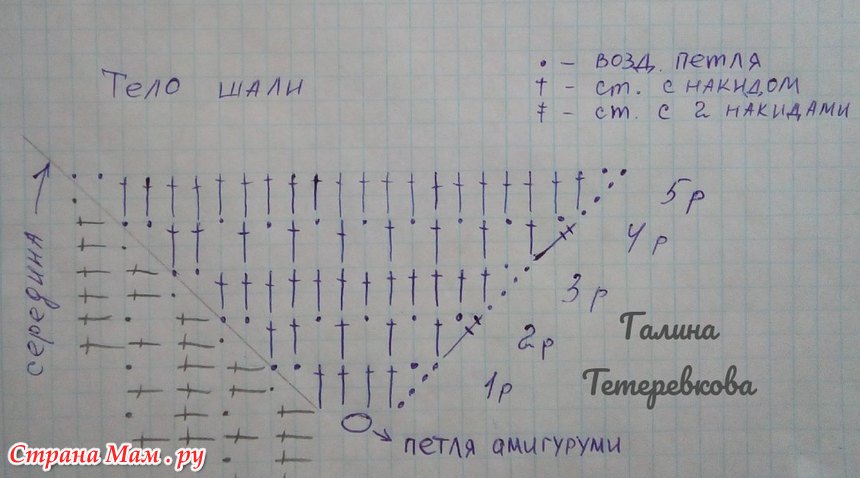 Тело шали
• – возд. петля
† – ст. с накидом
‡ – ст. с 2 накидами
середина
5р
4р
3р
2р
1р
Галина
Тетеревкова
петля амигуруми
Страна Мам.ру